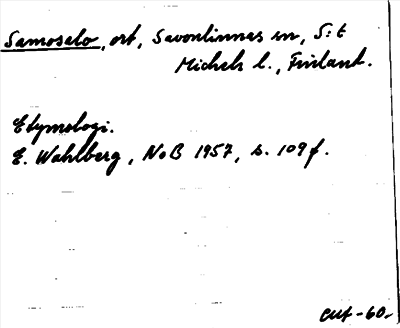 Samosalo, ort, Savonlinnas sn, S:t
Michels l., Finland.
Etymologi.
E. Wahlberg, NoB 1957, s. 109 f.
-60.